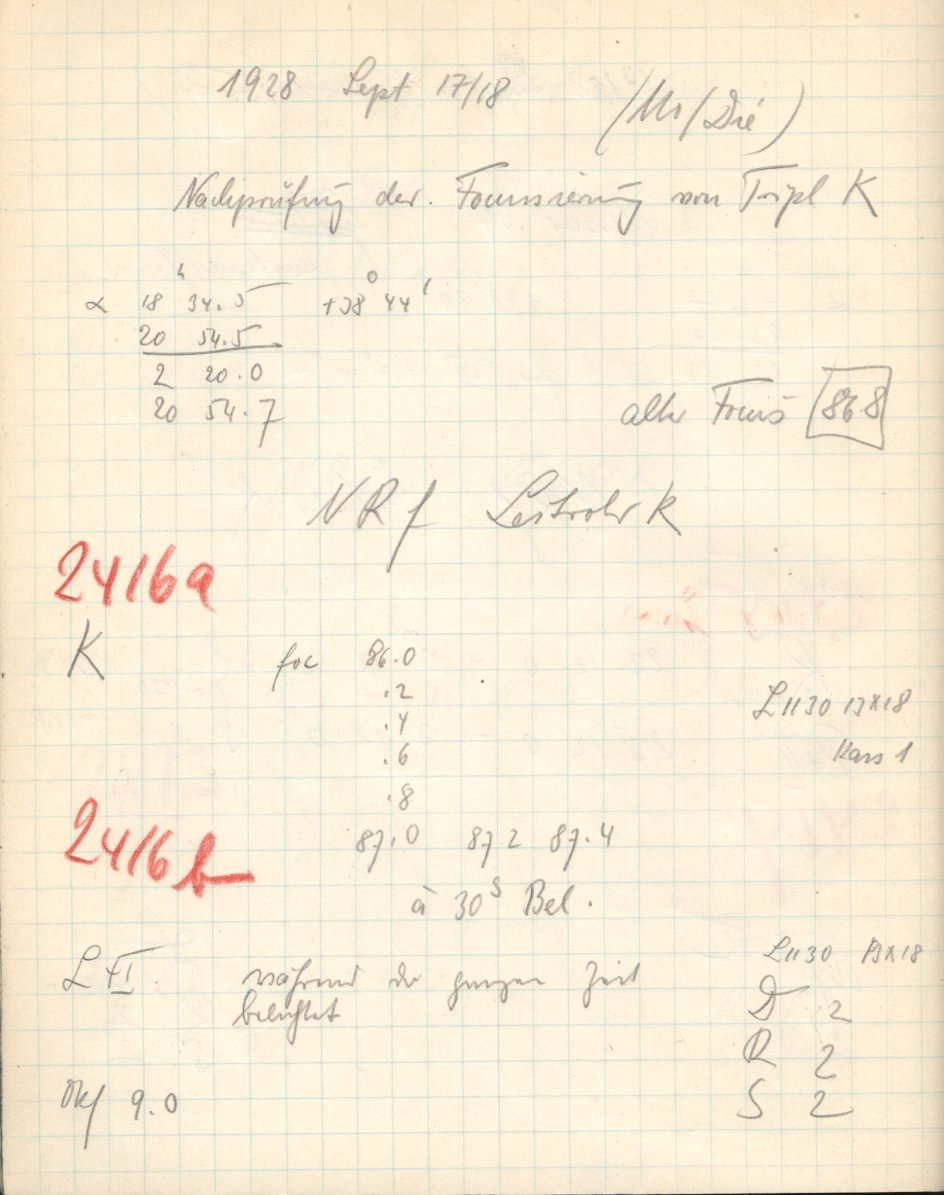 1928 Sept 17/18
(Ms/Dié)
Nachprüfung der Focussierung von Tripl K
α 18ʰ 34.5 +38° 44'
20 54.5
2 20.0
20 54.7
alter Focus 86.8
NRf Leitrohr K
2416a
K foc 86.0
.2
.4
.6
.8
L 1130 13x18
Kass 1
2416b
87.0 87.2 87.4
à 30ˢ Bel.
L 1130 13x18
während der ganzen Zeit
belichtet
D 2
R 2
S 2
9.0